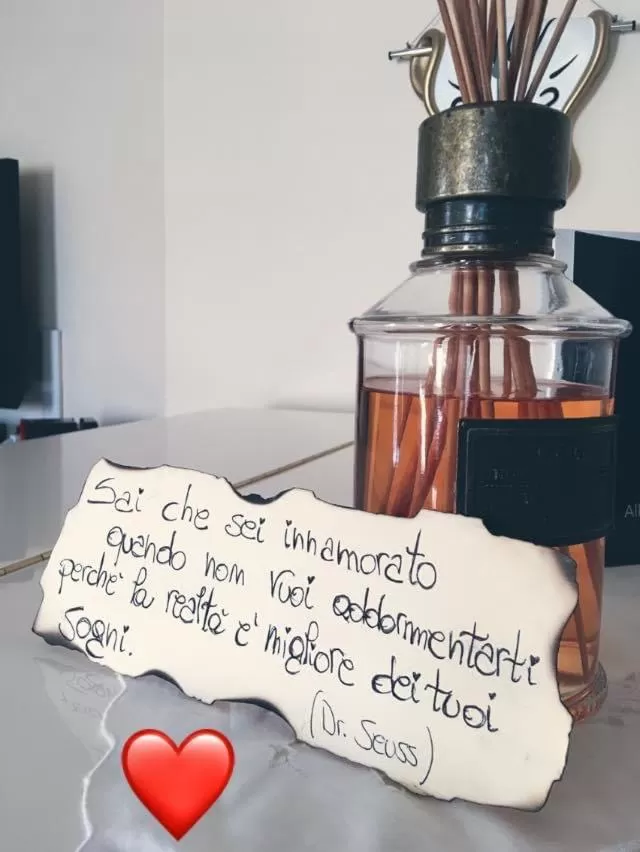 Sai che sei innamorato
quando non vuoi addormentarti
perchè la realtà è migliore dei tuoi
sogni.
(Dr. Seuss)